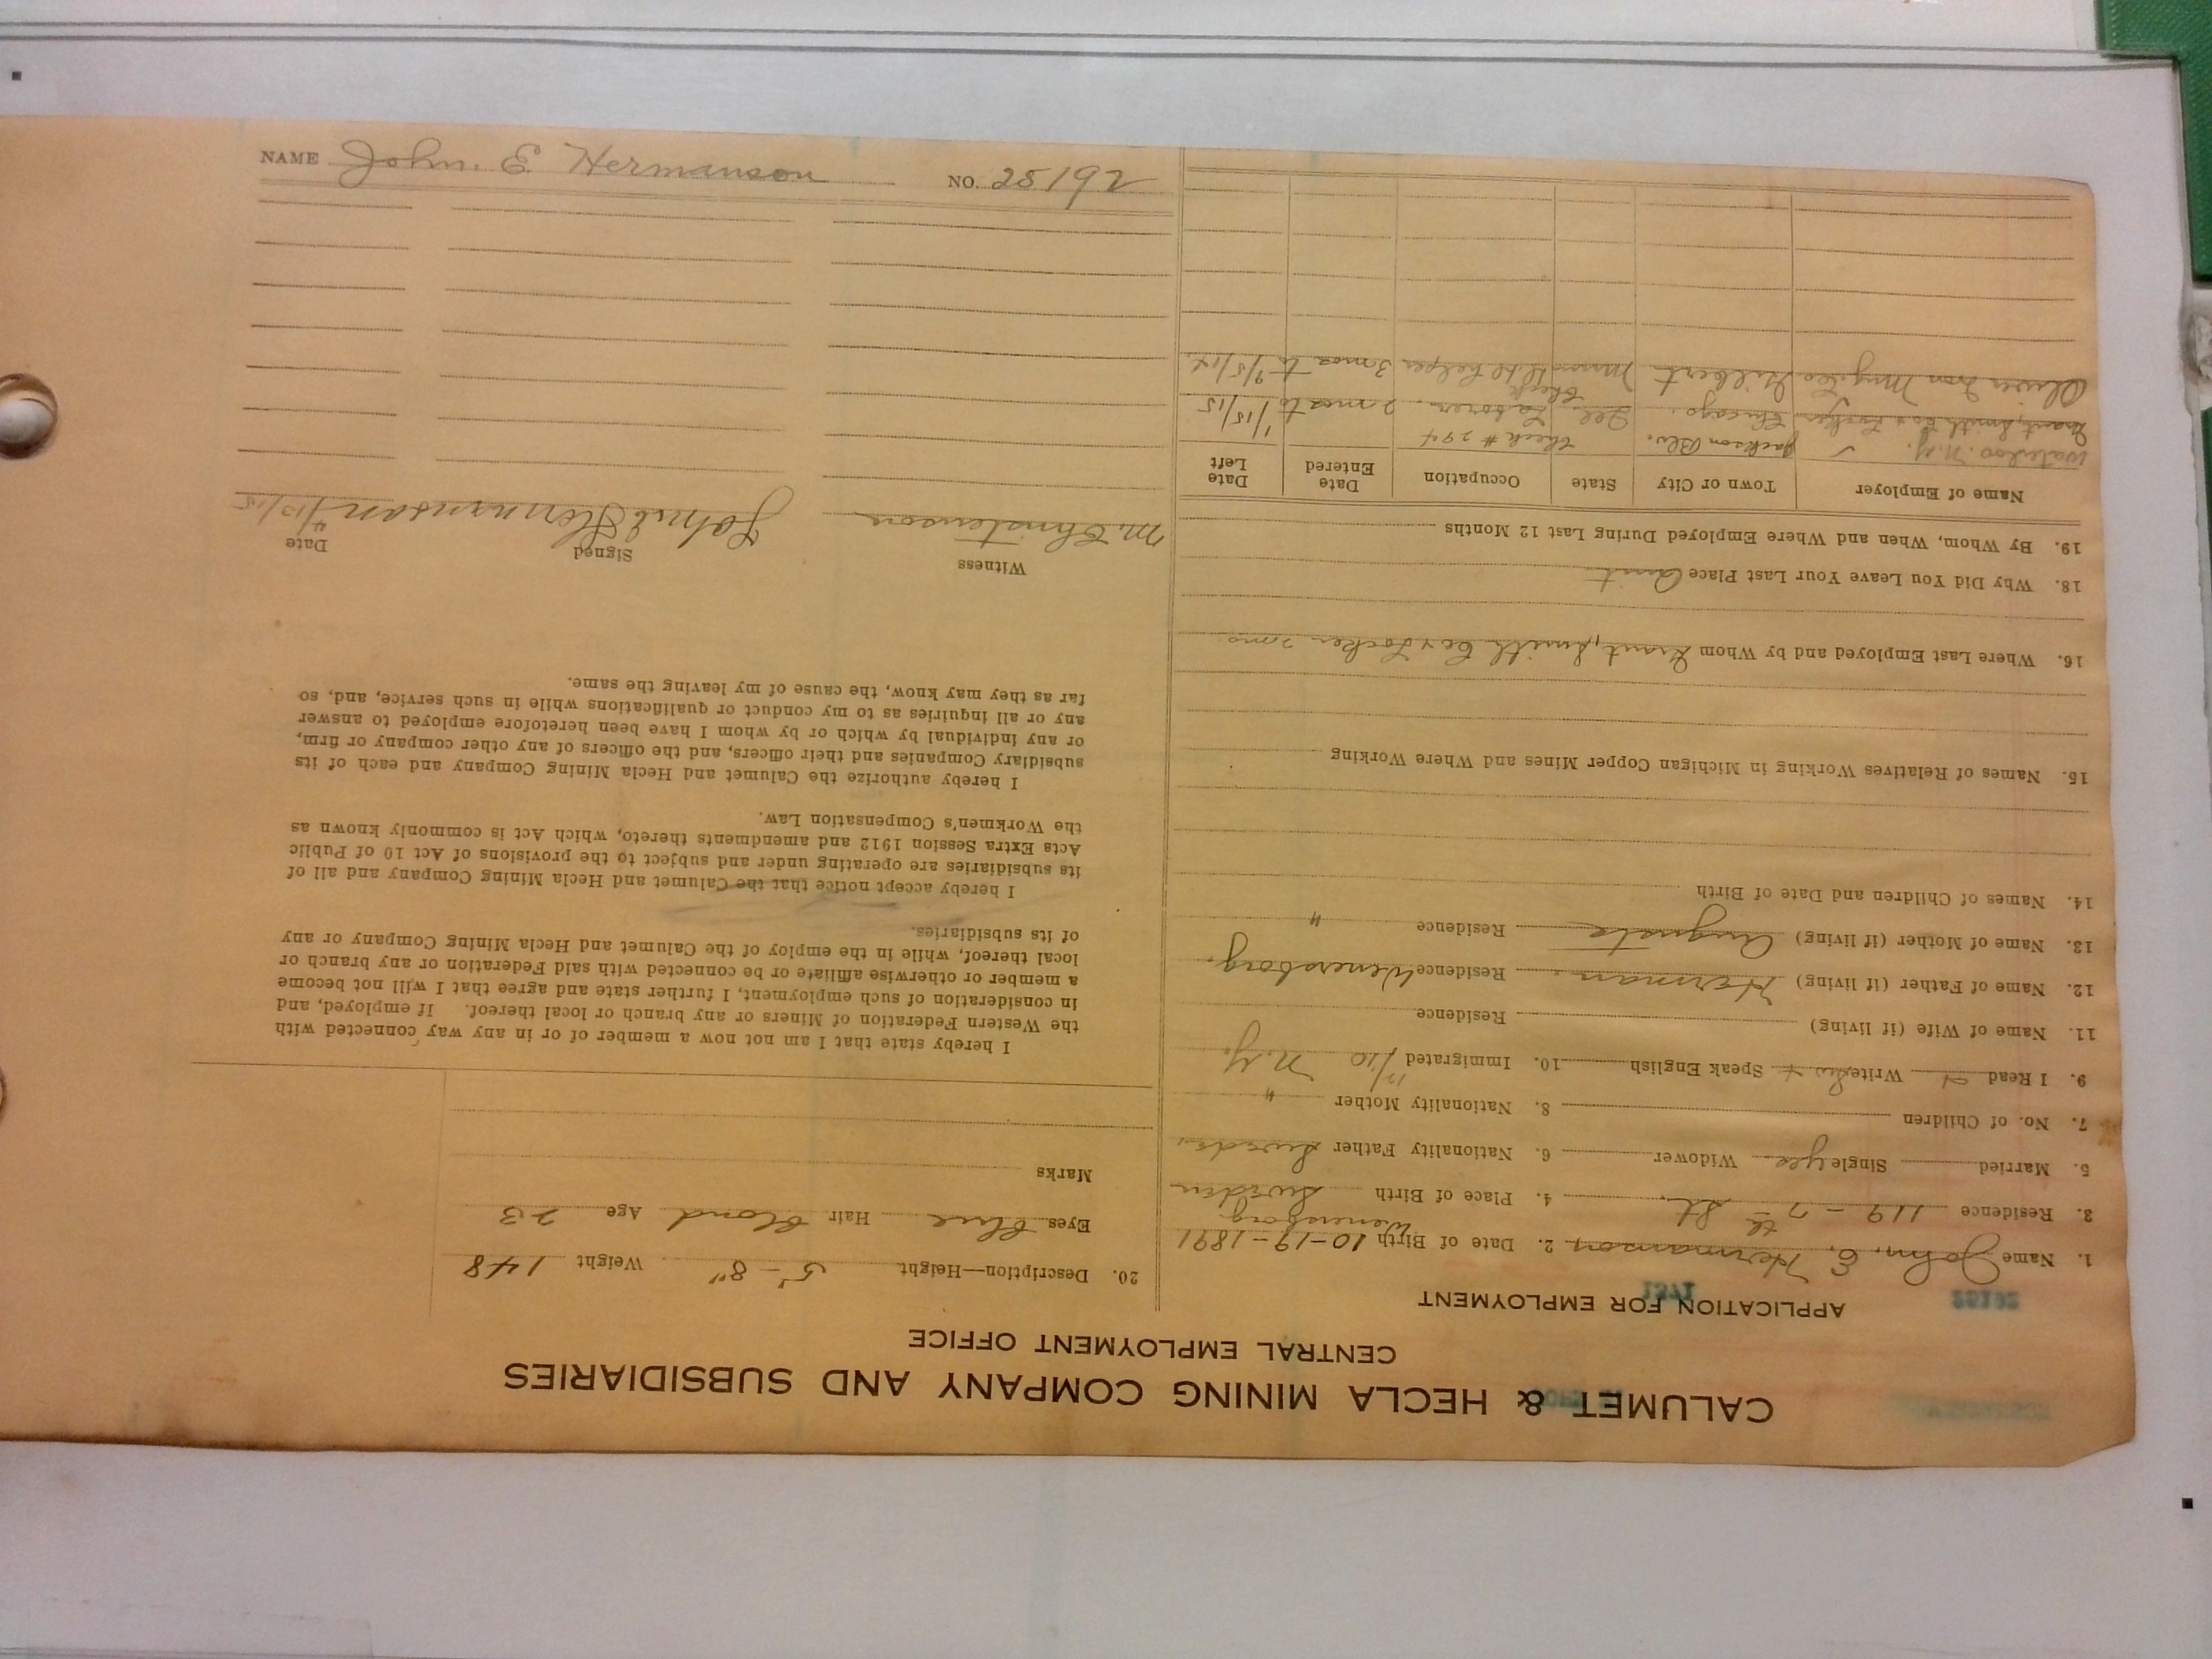 CALUMET & HECLA MINING COMPANY AND SUBSIDIARIES
CENTRAL EMPLOYMENT OFFICE
25192 APPLICATION FOR EMPLOYMENT 1571
1. Name John, E, Hermanson, 2. Date of Birth 10-19-1891
3. Residence 119 - 7th St. 4. Place of Birth Wenersborg Sweden
5. Married Single yes Widower 6. Nationality Father Swede,
7. No. of Children 8. Nationality Mother "
9. I Read Write Speak English 10. Immigrated 12/10 N.Y.
11. Name of Wife (if living) Residence
12. Name of Father (if living) Herman Residence Wenersborg.
13. Name of Mother (if living) Residence "
14. Names of Children and Date of Birth
15. Names of Relatives Working in Michigan Copper Mines and Where Working
16. Where Last Employed and by Whom Grant, Smith Co & Locker 2 mo
18. Why Did You Leave Your Last Place Quit
19. By Whom, When and Where Employed During Last 12 Months
Name of Employer Town or City State Occupation Date Entered Date Left
Waterloo. N.Y. Jackson Blv. Check # 294
Grant, Smith Co & Locker Chicago. Ill. Laborer. 2 mos to 1/15/15
Oliver Iron Mng. Co Gilbert Minn helper 3 mos to 9/15/14.
20. Description—Height 5' - 8" Weight 148
Eyes blue Hair blond Age 23
Marks
I hereby state that I am not now a member of or in any way connected with
the Western Federation of Miners or any branch or local thereof. If employed, and
in consideration of such employment, I further state and agree that I will not become
a member or otherwise affiliate or be connected with said Federation or any branch or
local thereof, while in the employ of the Calumet and Hecla Mining Company or any
of its subsidiaries.
I hereby accept notice that the Calumet and Hecla Mining Company and all of
its subsidiaries are operating under and subject to the provisions of Act 10 of Public
Acts Extra Session 1912 and amendments thereto, which Act is commonly known as
the Workmen's Compensation Law.
I hereby authorize the Calumet and Hecla Mining Company and each of its
subsidiary Companies and their officers, and the officers of any other company or firm,
or any individual by which or by whom I have been heretofore employed to answer
any or all inquiries as to my conduct or qualifications while in such service, and, so
far as they may know, the cause of my leaving the same.
Witness Signed Date
M. Christenson John E Hermanson 4/13/15
NAME John. E. Hermanson NO. 25192